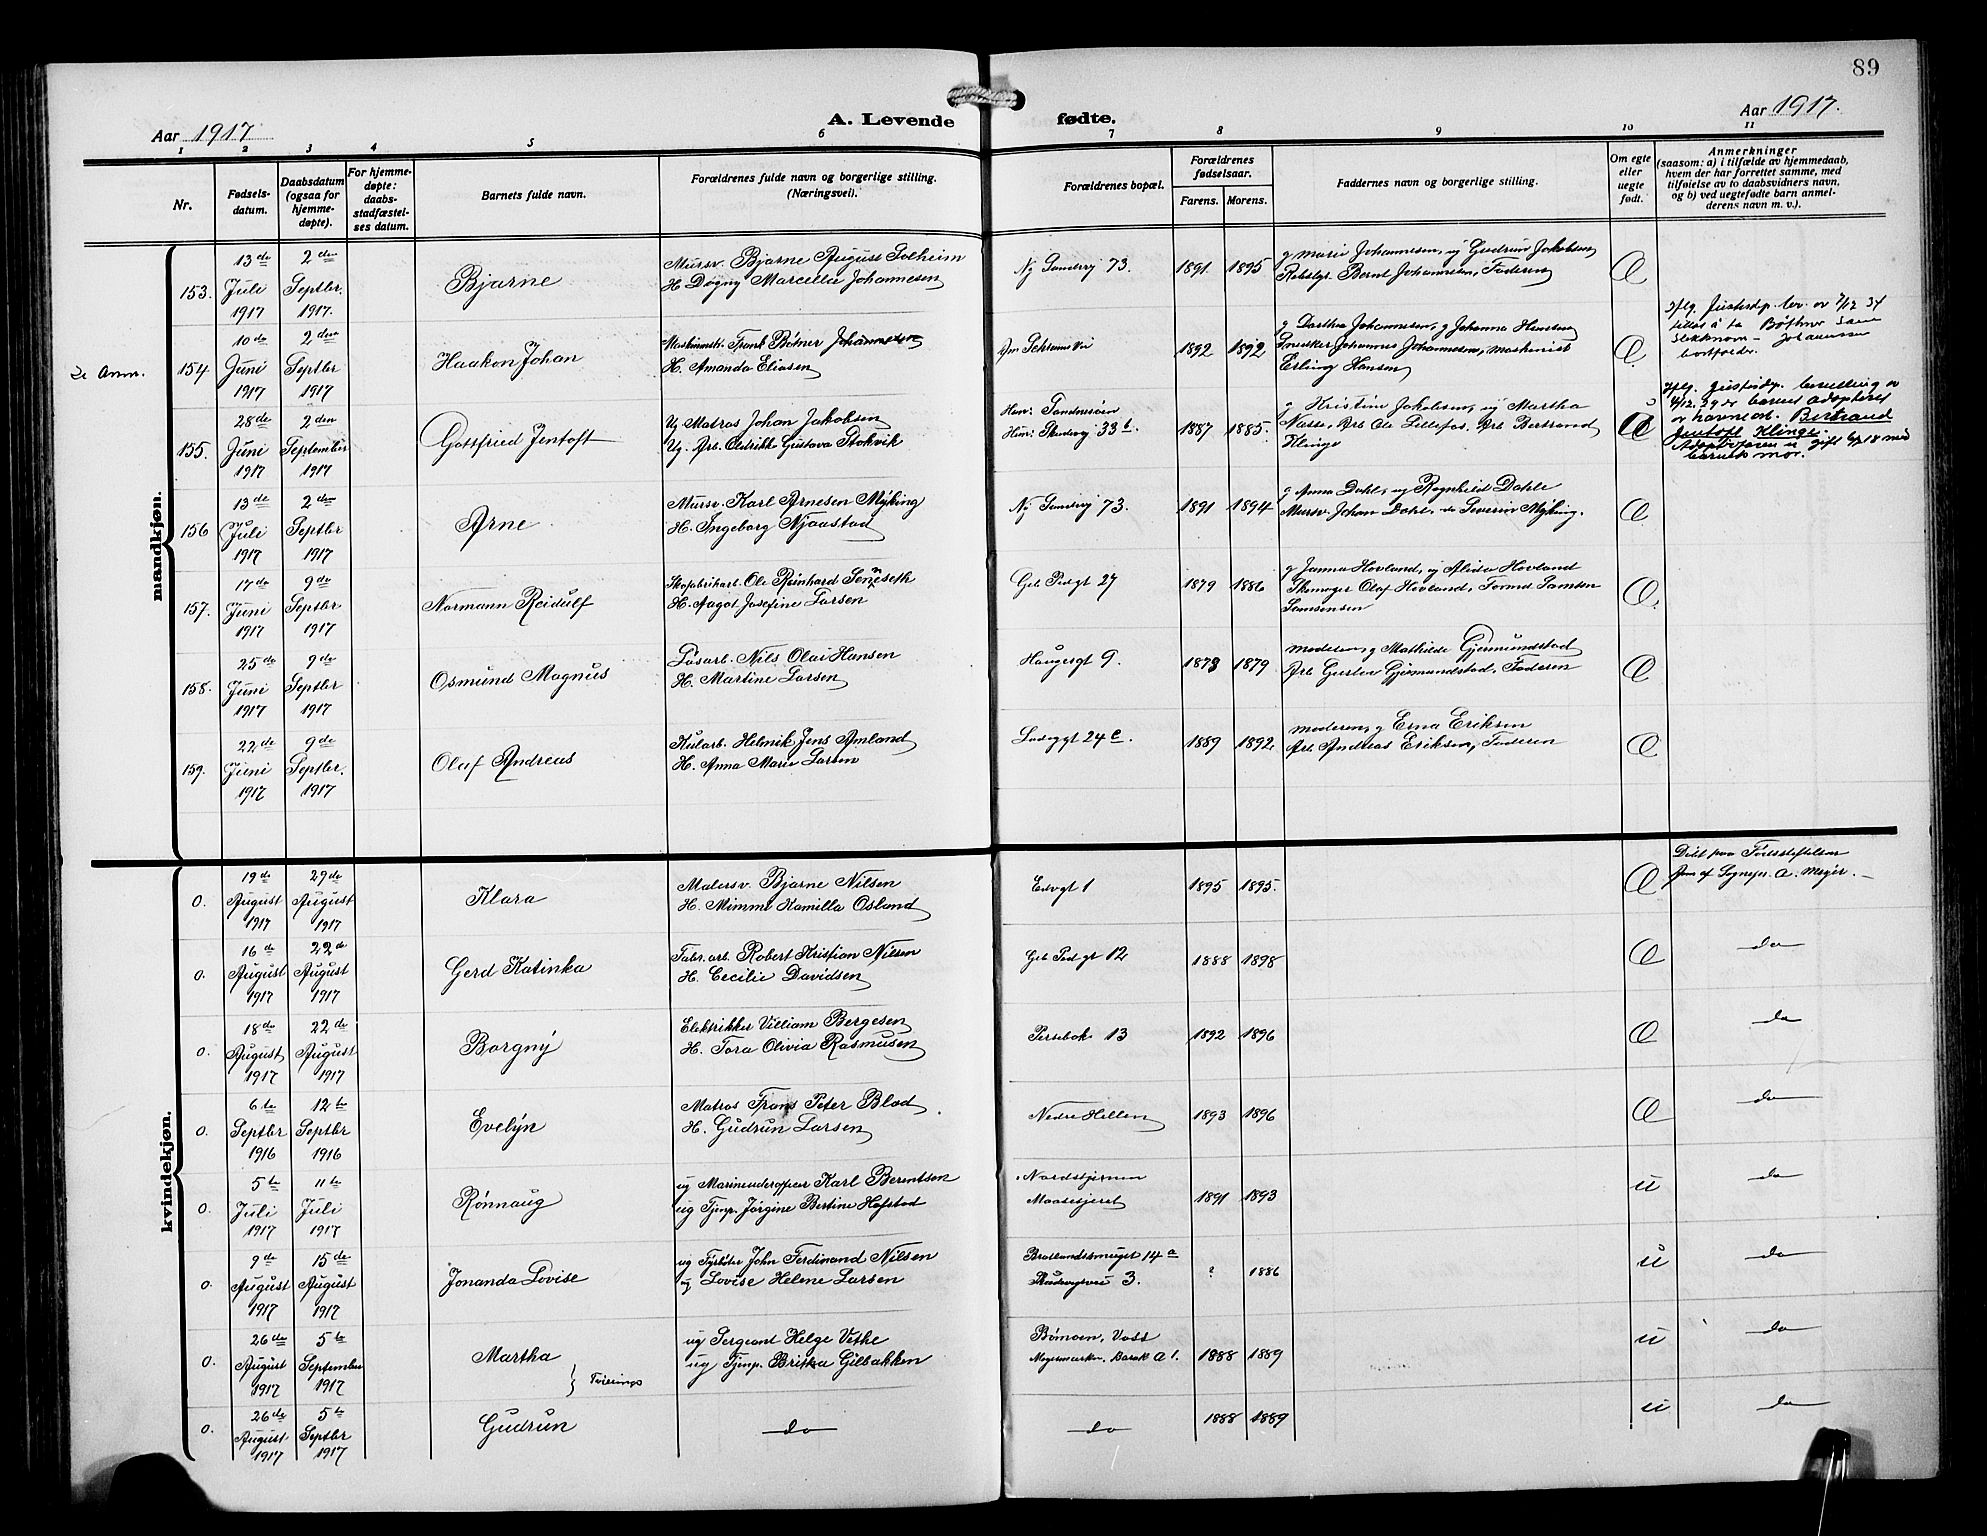 89
Aar 1917
A. Levende fødte.
Aar 1917.
1 2 3 4 5 6 7 8 9 10 11
Nr.
Fødsels-
datum.
Daabsdatum
(ogsaa for
hjemme-
døpte).
For hjemme-
døpte:
daabs-
stadfæstel-
ses datum.
Barnets fulde navn.
Forældrenes fulde navn og borgerlige stilling.
(Næringsvei).
Forældrenes bopæl.
Forældrenes
fødselsaar.
Farens. Morens.
Faddernes navn og borgerlige stilling.
Om egte
eller
uegte
født.
Anmerkninger
(saasom: a) i tilfælde av hjemmedaab,
hvem der har forrettet samme, med
tilføielse av to daabsvidners navn,
og b) ved uegtefødte barn anmel-
derens navn m. v.).
mandkjøn.
153. 13de Juli 1917 2den Septbr. 1917. Bjarne
Mursv. Bjarne August Solheim
H. Dagny Marcella Johannesen
Ny Sandvig 73. 1891. 1895
g Marie Johannesen, ug Gudrun Jakobsen
Rebslgr. Bernt Johannesen, Faderen
E
154 10de Juni 1917 2den Septbr 1917 Haakon Johan
Maskinmstr. Frank Bötner Johannesen
H. Amanda Eliasen
1892 1892
g Dorthea Johannesen, g Johanna Hansen
Snedker Johannes Johannesen, maskinist
Erling Hansen
E.
Iflg. Justisdp. bev. av 7/12 34
tillat å ta Bøthner som
slektsnavn – Johannessen
bortfalder.
se Anm.
155. 28de Juni 1917 2den September 1917 Gottfried Jentoft
Ug Matros Johan Jakobsen
Ug. Arb. Ulrikke Gustava Stokvik
Hen: Sandviken
Hun: Skudevg 33b. 1887 1885.
g Kristine Jakobsen, ug Martha
Næss, Arb Ole Lillefos, Arb Bertrand
Klinge
Iflg. Justisdp. bevilling av
4/12. 29 er barnet adopteret
av havnearb. Bertrand
Jentoft Klinge.
Adoptivfaren er gift 4/7 18 med
barnets mor.
156 13de Juli 1917 2den Septbr 1917 Arne
Mursv. Karl Arnesen Myking
H. Ingeborg Njaastad
Ny Sandvig 73. 1891 1894
g Anna Dahl, ug Ragnhild Dahle
Mursv. Johan Dahl, do Severin Myking.
E
157. 17de Juni 1917 9de Septbr 1917 Normann Reidulf
Skofabrikarb. Ole Reinhard Senneseth
H. Aagot Josefine Larsen
Geb Pedgt 27 1879 1886
g Janna Hovland, ug Alida Hovland
Skomager Olaf Hovland, Formd Samson
Samsonsen
E.
158. 25de Juni 1917 9de Septbr 1917 Osmund Magnus
Løsarb. Nils Olai Hansen
H. Martine Larsen
Haugesgt 9. 1873 1879
moderen, g Mathilde Gjermundstad
Arb Gustav Gjermundstad, Faderen
E
159. 22de Juni 1917 9de Septbr. 1917 Olaf Andreas
Kularb. Helmik Jens Amland
H. Anna Marie Larsen
Ladeggt 24c. 1889 1892.
moderen, g Erna Eriksen
Arb. Andreas Eriksen, Faderen
E
kvindekjøn.
0. 19de August 1917 29de August 1917 Klara
Malersv. Bjarne Nilsen
H. Mimmi Kamilla Osland
1895 1895.
E
Døbt paa Fødselsstiftelsen
af Sognepr. A. Meyer.
0. 16de August 1917 22de August 1917 Gerd Katinka
Fabr. arb. Robert Kristian Nilsen
H. Cecilie Davidsen
Geb Ped gt 12 1888 1898
E do
0. 18de August 1917 22de August 1917 Borgny
Elektrikker Villiam Bergesen
H. Tora Olivia Rasmussen
Persebak. 13 1892 1896
E do
0. 6te Septbr 1916 12te Septbr 1916 Evelyn
Matros Frans Peter Blad
H. Gudrun Larsen
Nedre Hellen 1893 1896
E do
0. 5te Juli 1917 11te Juli 1917 Rønnaug
ug Marineunderofficer Karl Berentsen
ug Tjnp. Jörgine Bertine Hofstad
Nordstjernen
1891 1893
u do
0. 9de August 1917 15de August 1917 Jonanda Lovise
ug Fyrböter John Ferdinand Nilsen
ug Lovise Helene Larsen
Bratlandssmuget 14a
Skudevigsvei 3. ? 1886
u do
0. 26de August 1917 5te September 1917 Martha
ug Sergeant Helge Vethe
ug Tjnp. Brithe Gilbakken
Bømoen, Voss
Møgermarken. Barak A 1. 1888 1889
u do
} Tvillinger
0. 26de August 1917 5te Septbr 1917 Gudrun
do do 1888 1889
u do